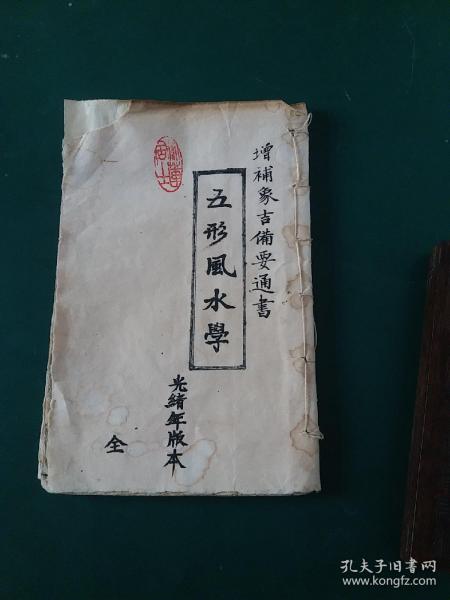 增補象吉備要通書
五形風水學
光緒年版本
全
孔夫子旧书网
www.kongfz.com